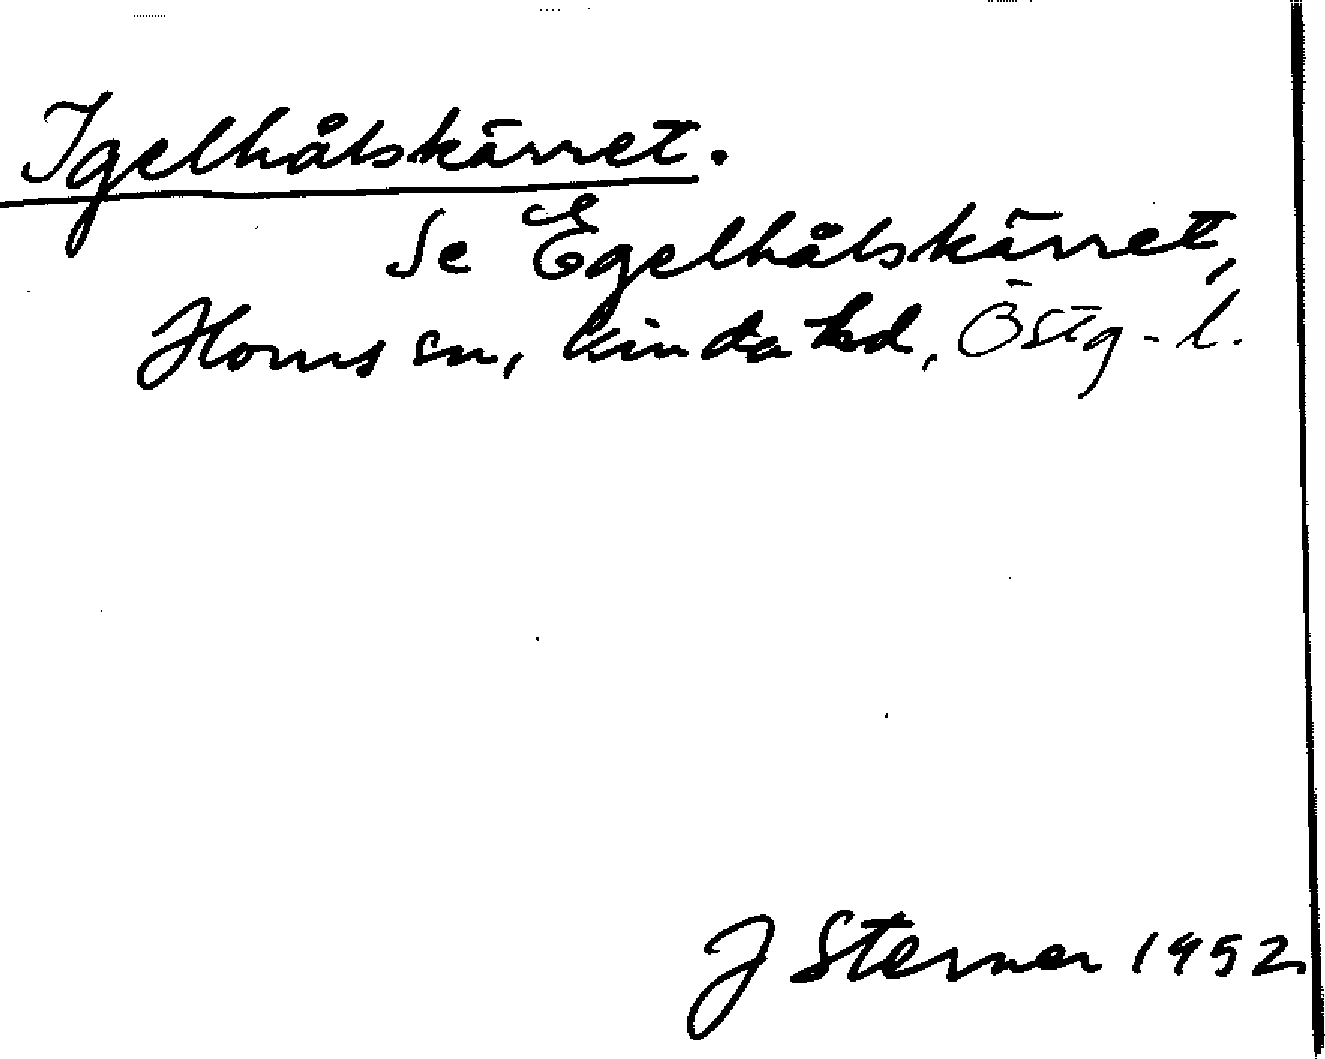 Igelhålskärret.
Se Egelhålskärret,
Horns sn, Kinda hd, Östg-l.
J Sterner 1952